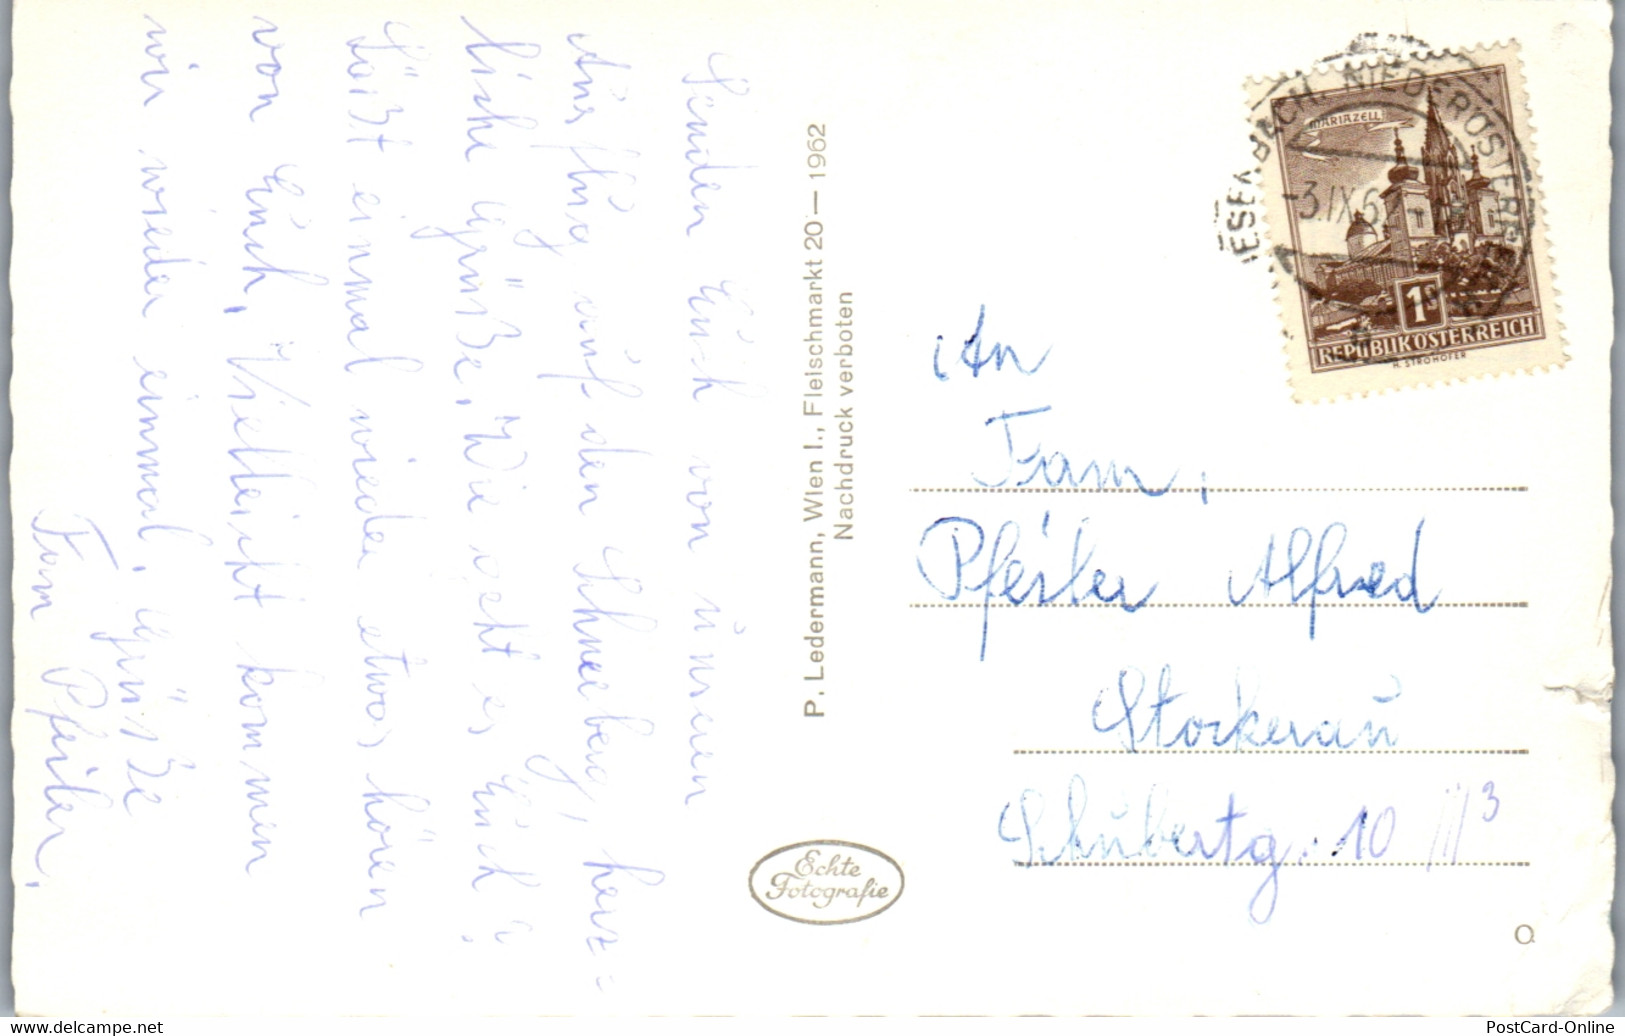 Senden Euch von unseren
Ausflug auf den Schneeberg, herz=
liche Grüße. Wie geht es Euch?
Laßt einmal wieder etwas hören
von Euch, Vielleicht kommen
wir wieder einmal. Grüße
Fam Pfeiler.
P. Ledermann, Wien I., Fleischmarkt 20 — 1962
Nachdruck verboten
Echte
Fotografie
MARIAZELL
-3.IX.6
1S
REPUBLIK ÖSTERREICH
H. STROHOFER
An
Fam.
Pfeiler Alfred
Stockerau
Schubertg. 10 III/3
Q
www.delcampe.net
PostCard-Online